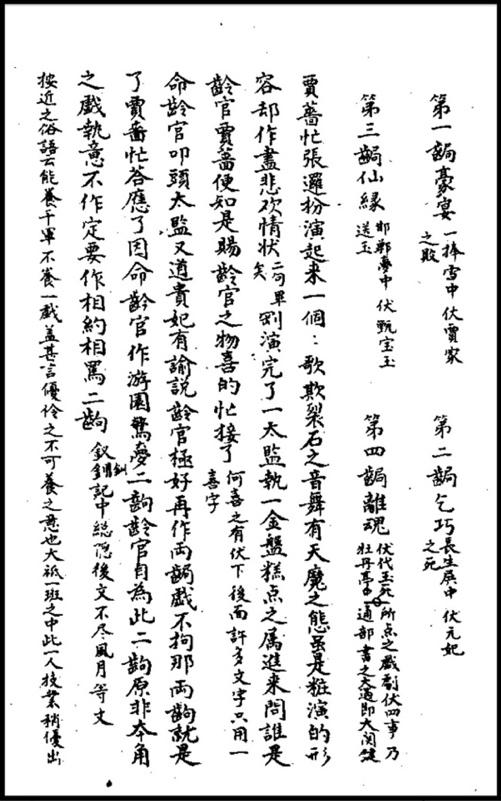 第一齣豪宴 一捧雪中伏賈家之敗 第二齣乞巧 長生殿中伏元妃之死
第三齣仙緣 邯鄲夢中伏甄宝玉送玉 第四齣離魂 牡丹亭中伏代玉死 所点之戲劇伏四事乃一通部書之大過即大関鍵
賈薔忙張邏扮演起来一個:歌欺裂石之音舞有天魔之態雖是粧演的形
容却作盡悲欢情状 二句畢矣 剛演完了一太監執一金盤糕点之属進来問誰是
齡官賈薔便知是賜齡官之物喜的忙接了 何喜之有伏下後面許多文字只用一喜字
命齡官叩頭太監又道貴妃有諭說齡官極好再作両齣戲不拘那両齣就是
了賈薔忙答應了因命齡官作游園驚夢二齣齡官自為此二齣原非本角
之戲執意不作定要作相約相罵二齣 釵釧記中総隐後文不尽風月等文
按近之俗語云能養千軍不養一戲盖甚言優伶之不可養之意也大祗一班之中此一人技業稍優出